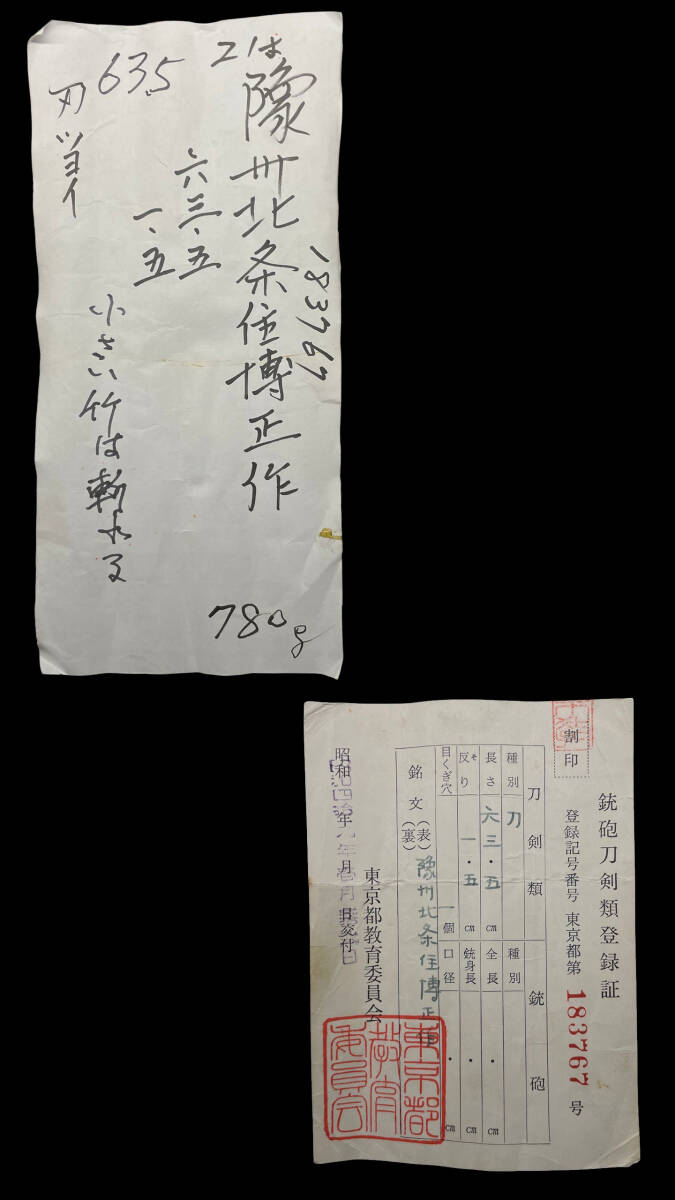 21は
豫州北条住博正作
183767
六三・五
一・五
635
刃ツヨイ
小さい竹は斬れる
780g
銃砲刀剣類登録証
登録記号番号 東京都第 183767 号
割印
刀剣類
銃砲
種別 刀
種別
長さ 六三・五 cm
全長 ・ cm
反り そり 一・五 cm
銃身長 ・ cm
目くぎ穴 一個
口径 ・ cm
銘文 (表) 豫州北条住博正作
(裏)
東京都教育委員会
昭和 年 月 日交付
東京都教育委員会